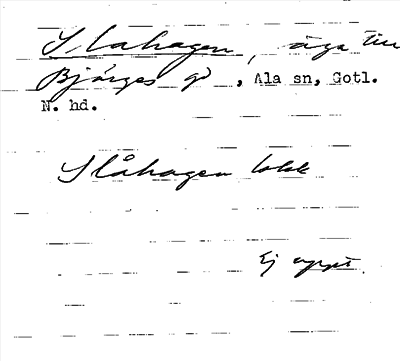 Slahagen, äga till
Björges gd, Ala sn, Gotl.
N. hd.
Slåhagen lokk
Ej uppt.